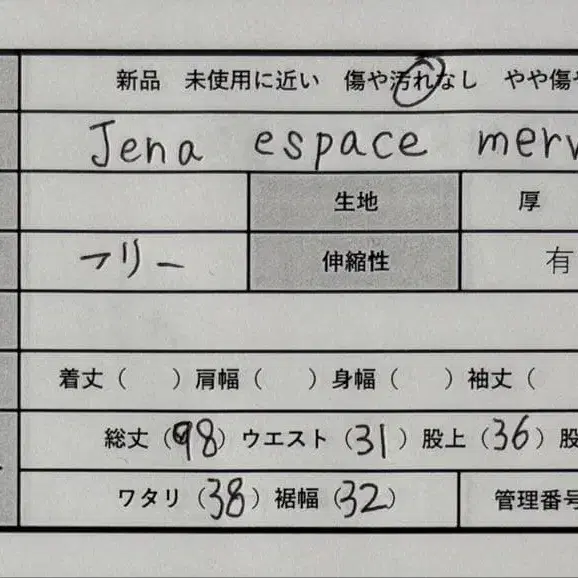 新品 未使用に近い 傷や汚れなし やや傷や
Jena espace merv
生地 厚
フリー 伸縮性 有
着丈( )肩幅( )身幅( )袖丈(
総丈(98)ウエスト(31)股上(36)股
ワタリ(38)裾幅(32) 管理番号